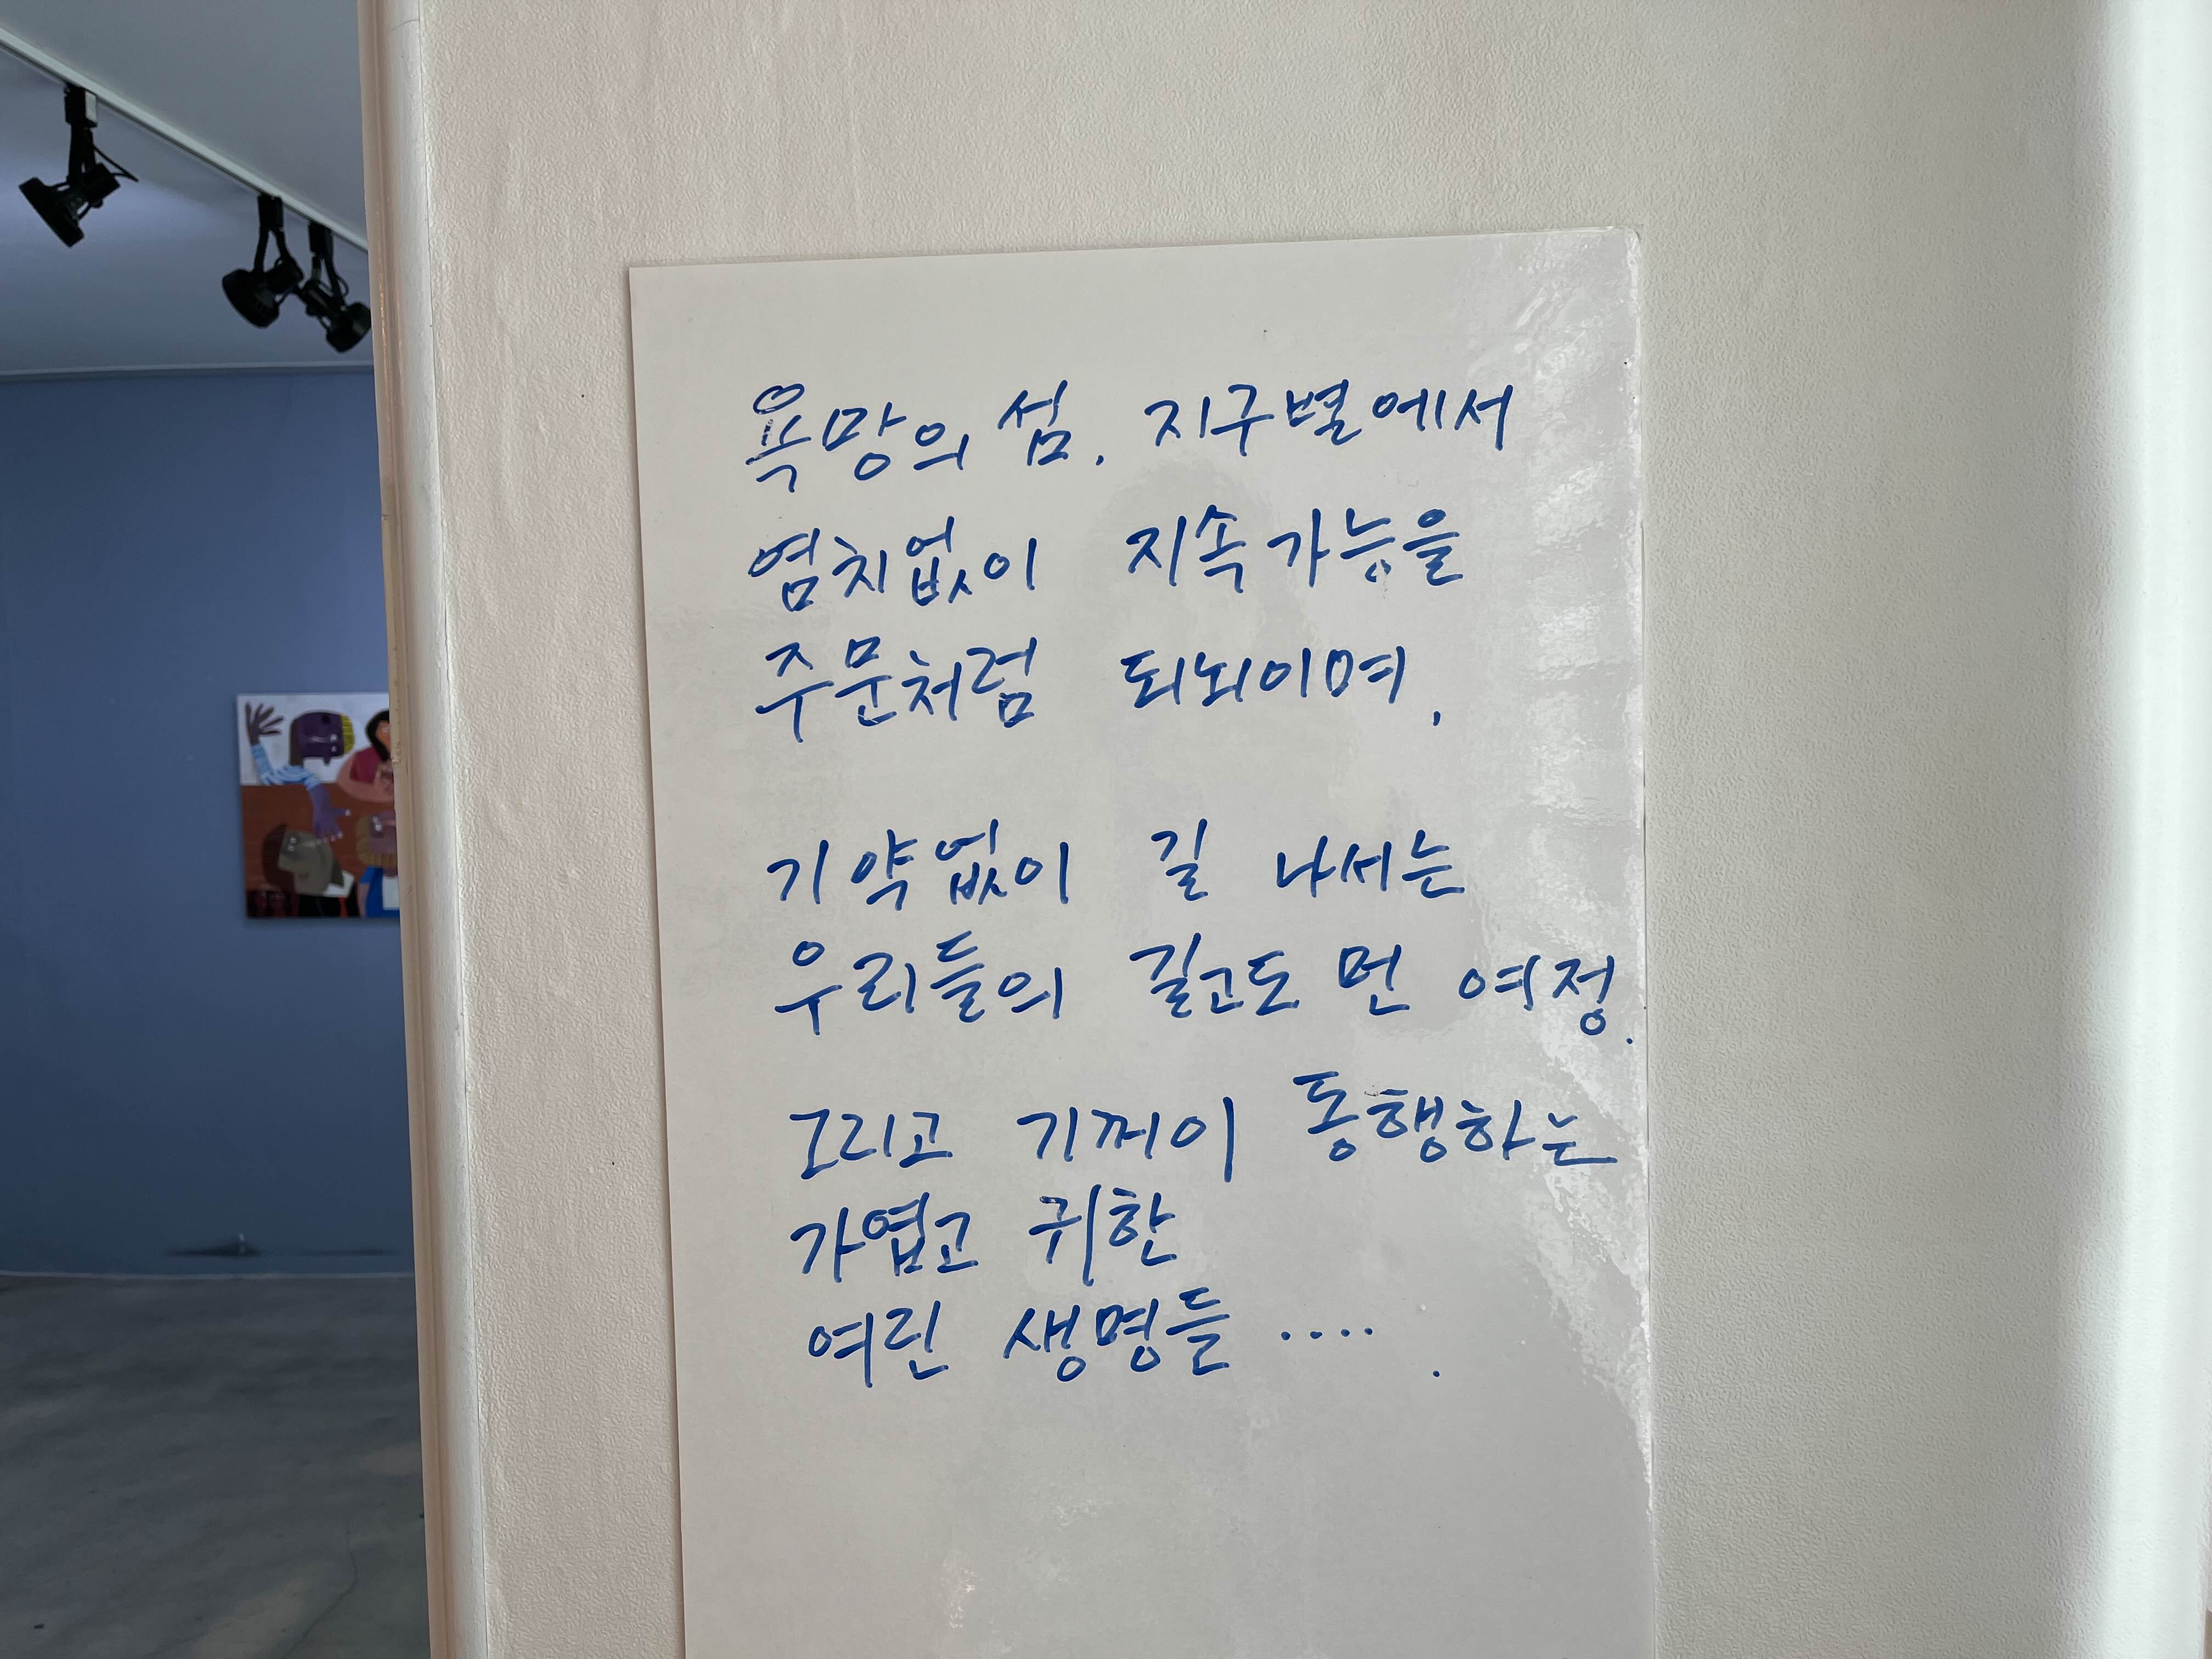 욕망의 섬. 지구별에서
염치없이 지속가능을
주문처럼 되뇌이며,
기약없이 길 나서는
우리들의 길고도 먼 여정.
그리고 기꺼이 동행하는
가엽고 귀한
여린 생명들 .... .